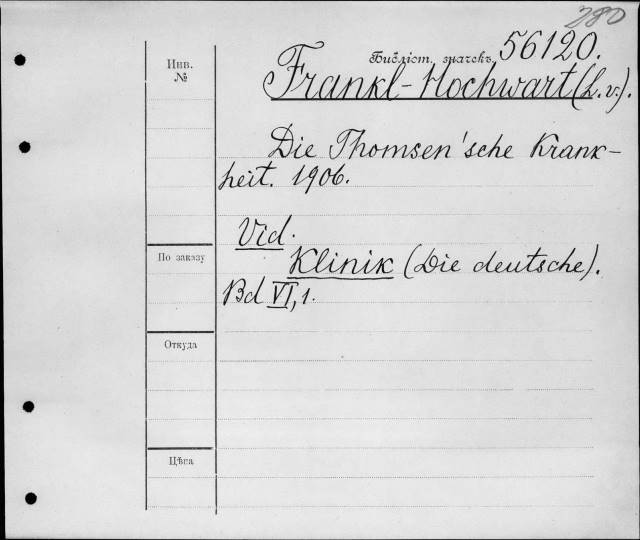 280
Инв.
№
Бібліот. значекъ 56120.
Frankl-Hochwart (L. v.).
Die Thomsen'sche Krank-
heit. 1906.
Vid.
По заказу
Klinik (Die deutsche).
Bd VI, 1.
Откуда
Цѣна